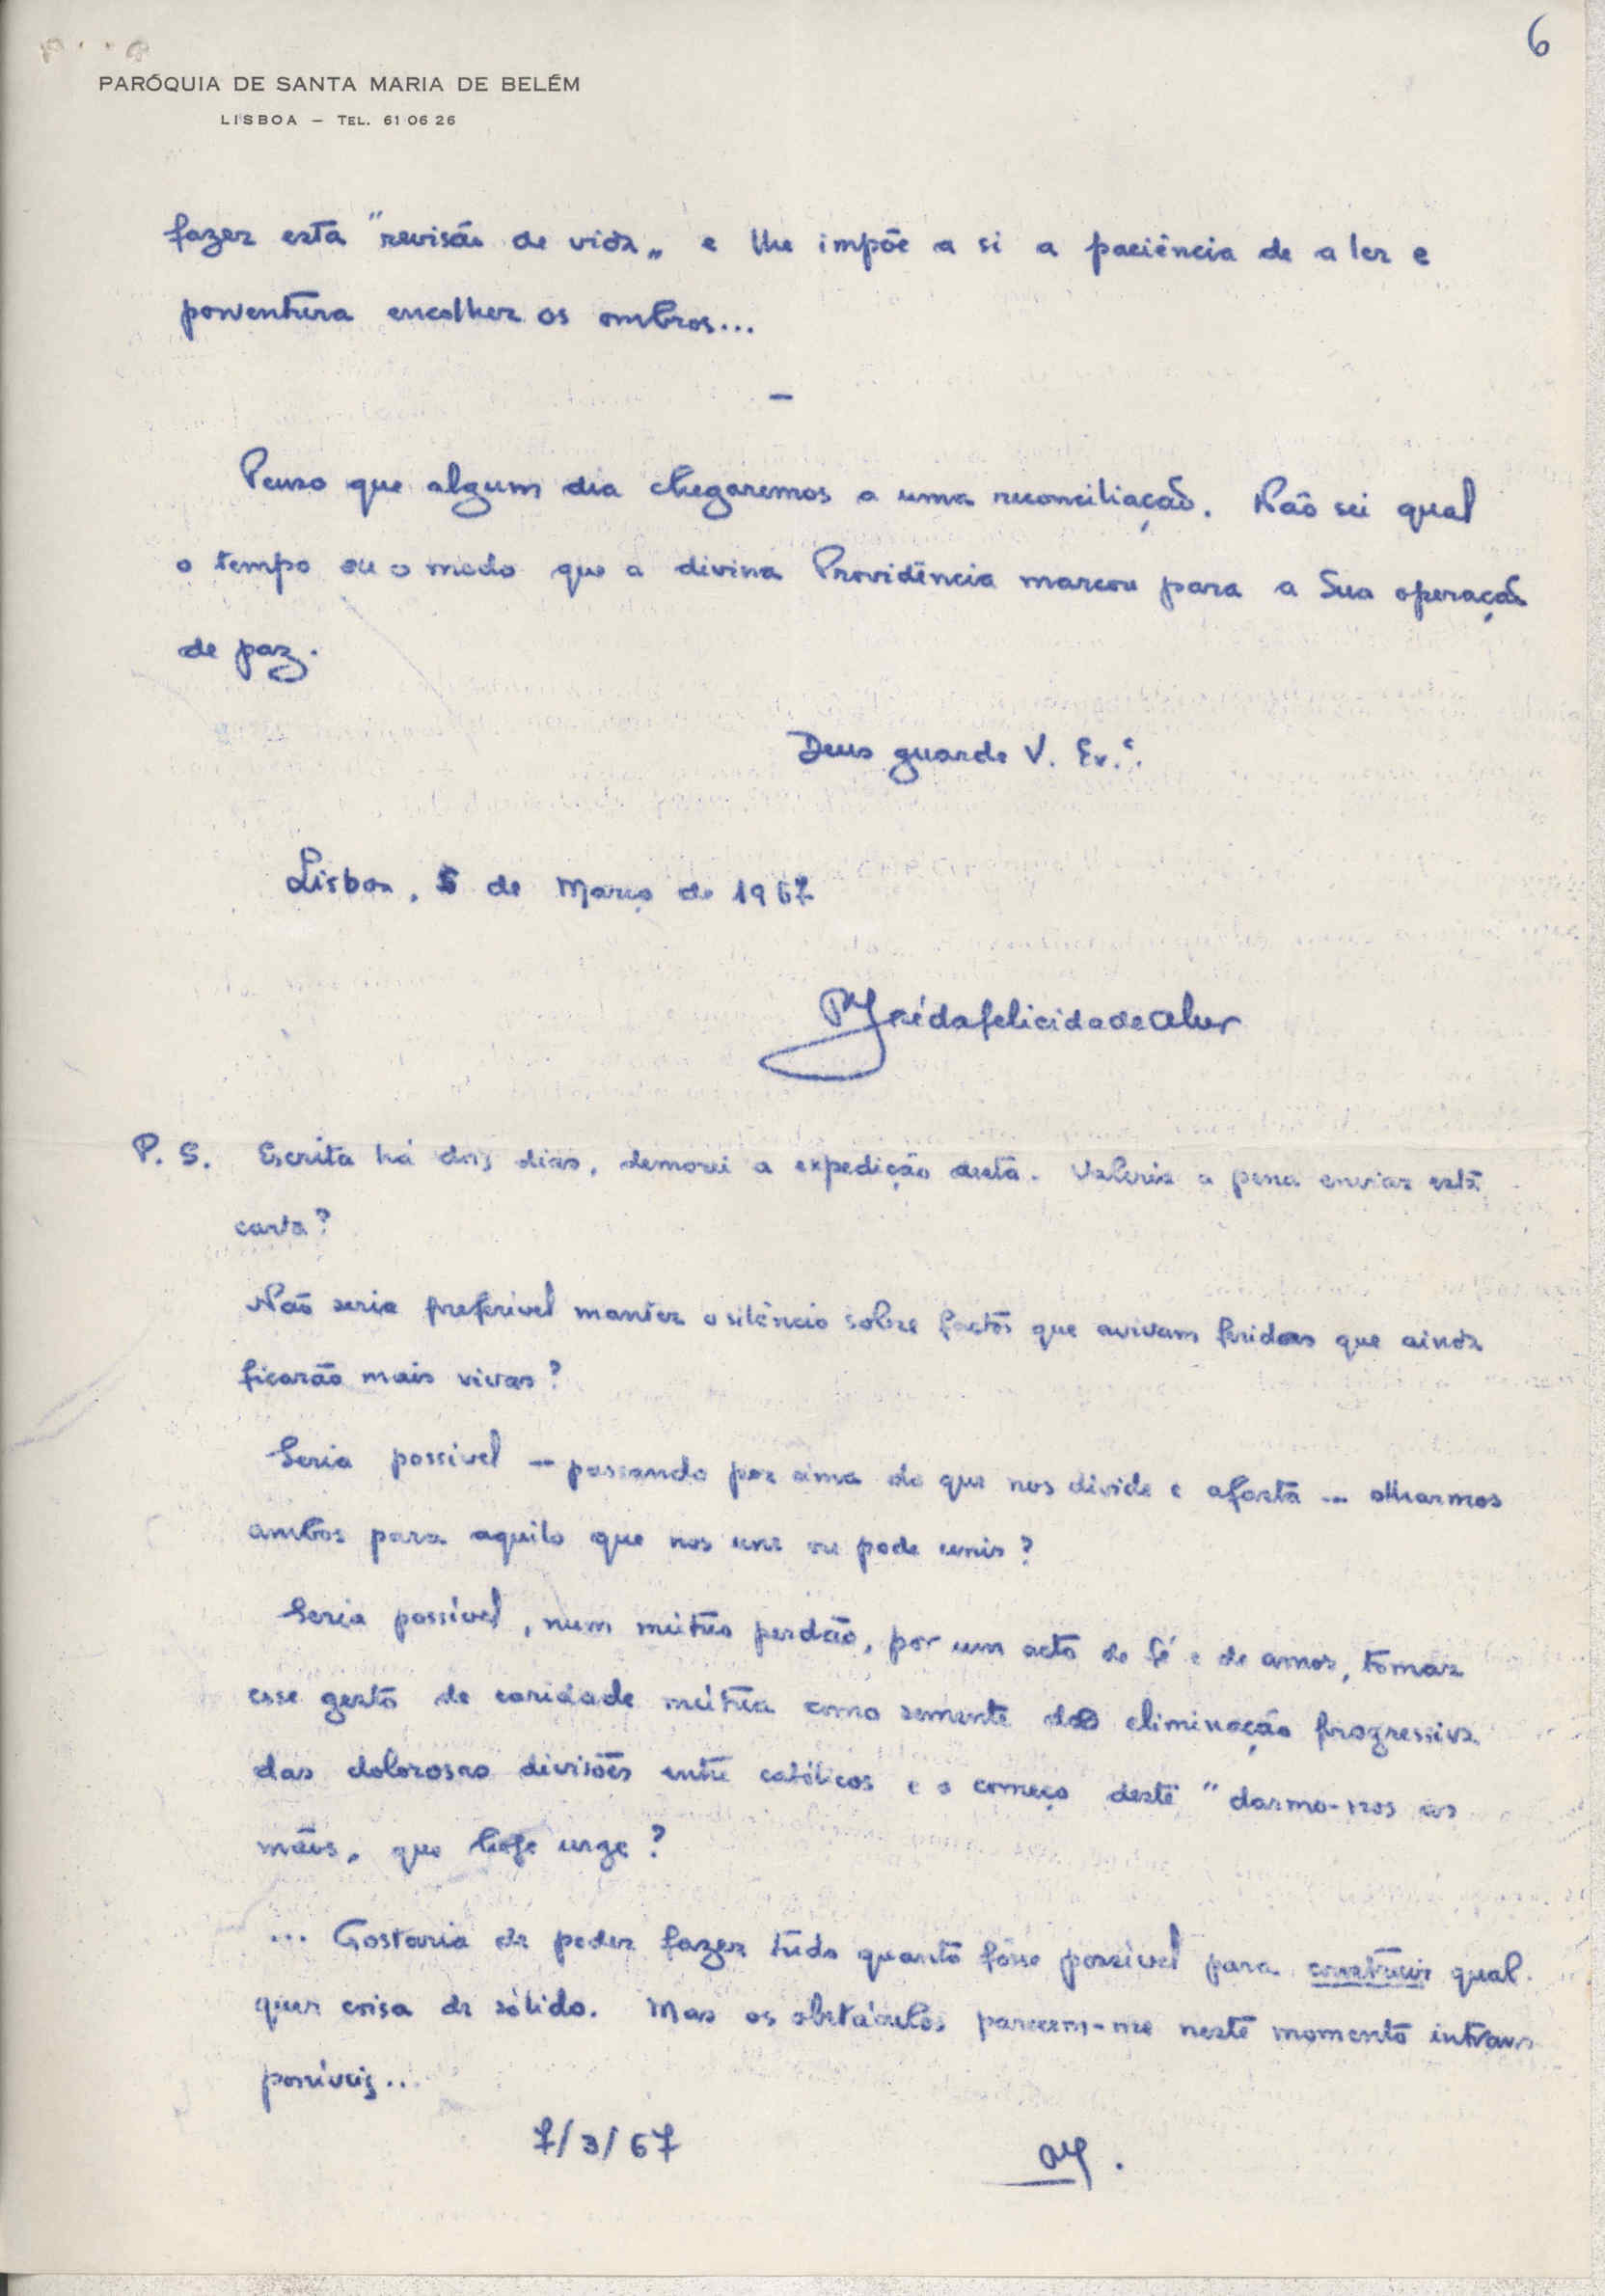 6
PARÓQUIA DE SANTA MARIA DE BELÉM
LISBOA — TEL. 61 06 26
fazer esta "revisão de vida„ e lhe impõe a si a paciência de a ler e
porventura encolher os ombros...
—
Penso que algum dia chegaremos a uma reconciliação. Não sei qual
o tempo ou o modo que a divina Providência marcou para a Sua operação
de paz.
Deus guarde V. Ex.ª.
Lisboa, 5 de Março de 1967
P.e José da Felicidade Alves
P. S. Escrita há dois dias, demorei a expedição desta. Valeria a pena enviar esta
carta?
Não seria preferível manter o silêncio sobre factos que avivam feridas que ainda
ficarão mais vivas?
Seria possível — passando por cima do que nos divide e afasta — olharmos
ambos para aquilo que nos une ou pode unir?
Seria possível, num mútuo perdão, por um acto de fé e de amor, tomar
esse gesto de caridade mútua como semente da eliminação progressiva
das dolorosas divisões entre católicos e o começo deste "darmo-nos as
mãos„ que hoje urge?
... Gostaria de poder fazer tudo quanto fôsse possível para construir qual-
quer coisa de sólido. Mas os obstáculos parecem-me neste momento intrans
poníveis...
7/3/67